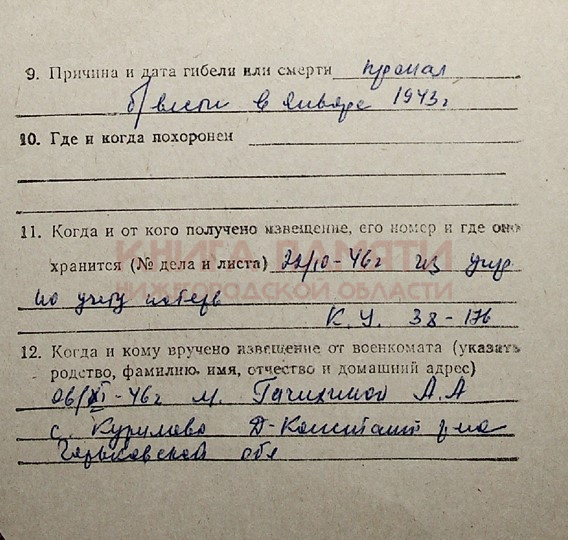 9. Причина и дата гибели или смерти пропал
б/вести в январе 1943г
10. Где и когда похоронен
11. Когда и от кого получено извещение, его номер и где оно
хранится (№ дела и листа) 22/10-46г из упр
по учету потерь
К.У. 38-176
КНИГА ПАМЯТИ
НИЖЕГОРОДСКОЙ ОБЛАСТИ
12. Когда и кому вручено извещение от военкомата (указать
родство, фамилию, имя, отчество и домашний адрес)
06/XI-46г м. А.А
с. Курилово Д-Констант р-на
Горьковской обл